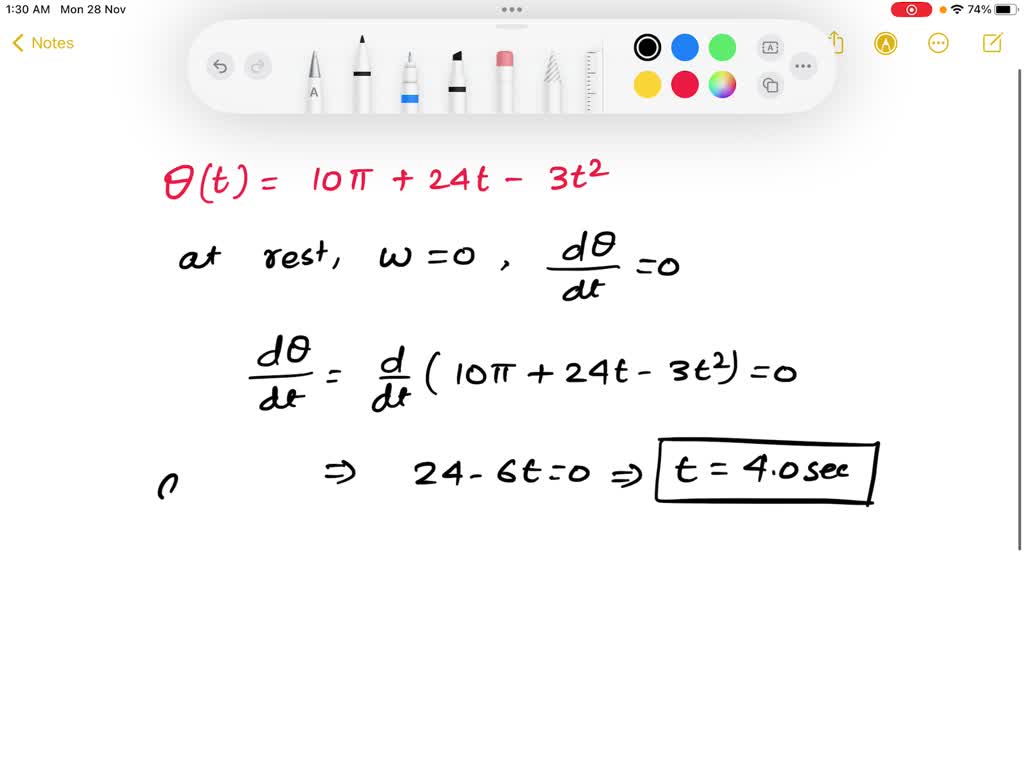 1:30 AM Mon 28 Nov
74%
Notes
A
A
θ(t) = 10π + 24t - 3t²
at rest, w = 0, dθ/dt = 0
dθ/dt = d/dt (10π + 24t - 3t²) = 0
⇒ 24 - 6t = 0 ⇒ t = 4.0 sec